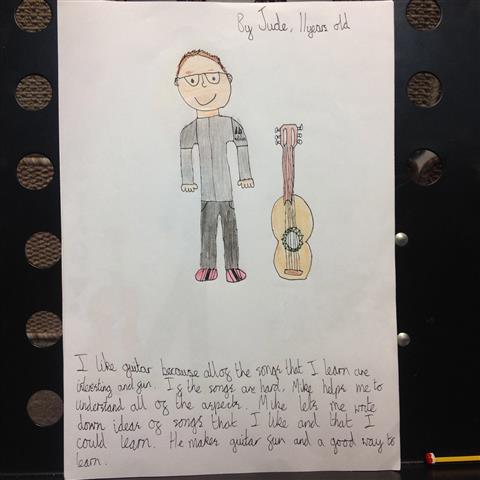 By Jude, 11years old
I like guitar because all of the songs that I learn are
interesting and fun. If the songs are hard, Mike helps me to
understand all of the aspects. Mike lets me write
down ideas of songs that I like and that I
could learn. He makes guitar fun and a good way to
learn.